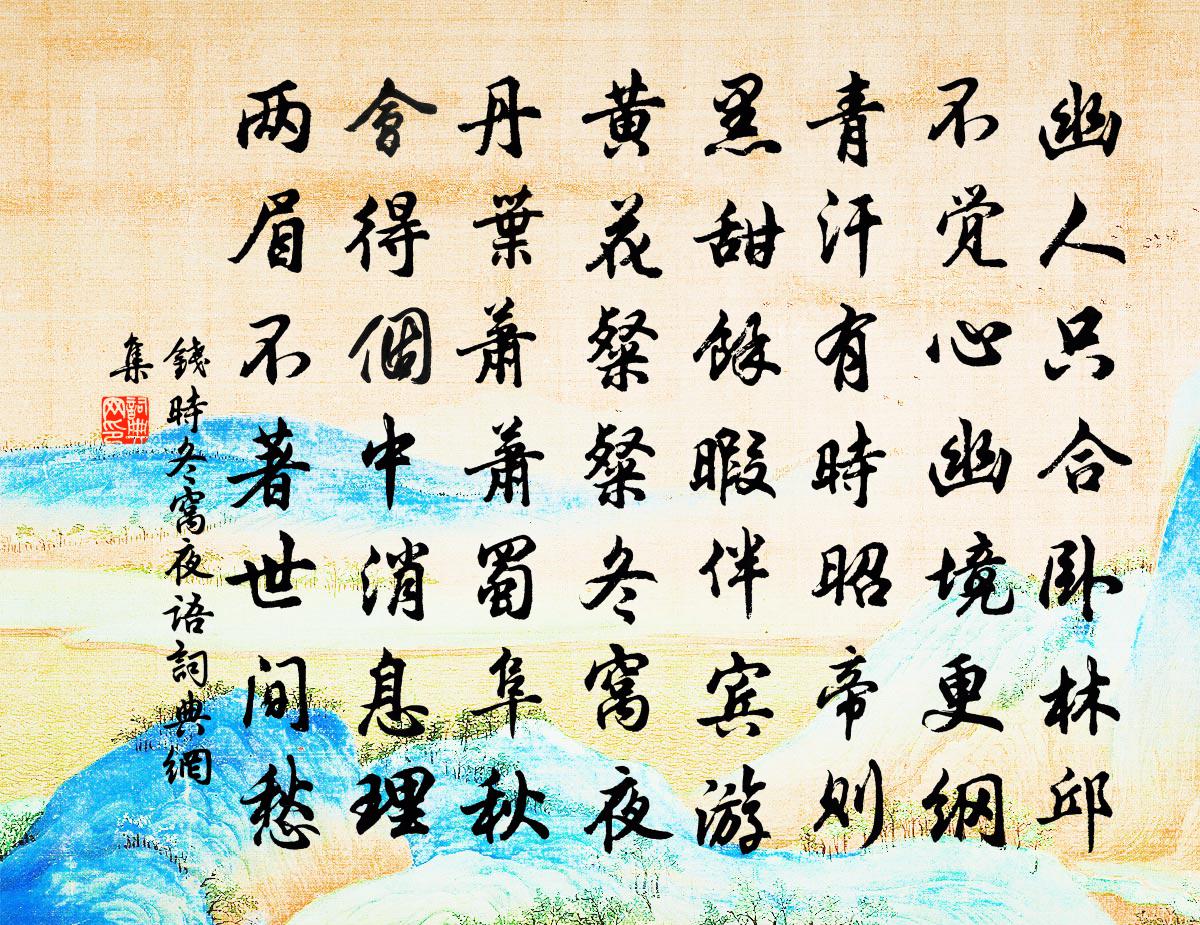 幽人只合卧林邱
不觉心幽境更纲
青汗有時昭帝则
黑甜餘暇伴宾游
黄花粲粲冬窩夜
丹葉萧萧蜀阜秋
會得個中消息理
两眉不著世间愁
錢時冬窩夜語詞典網
集
詞典網印